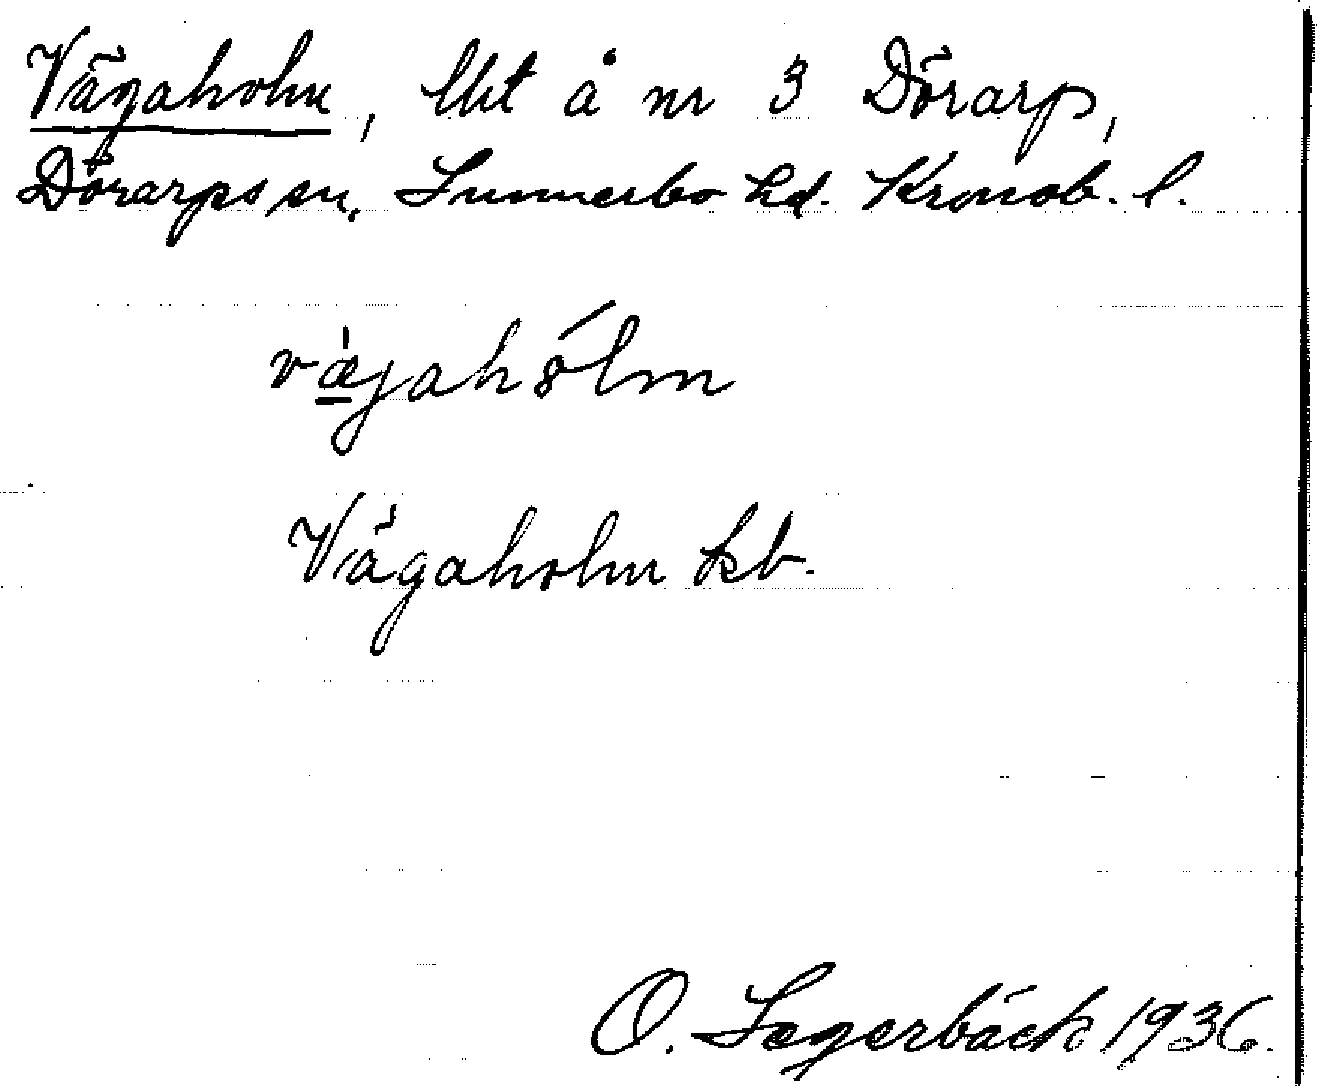 Vägaholm, lht å nr 3 Dörarp,
Dörarps sn, Sunnerbo hd. Kronob. l.
væ̱gahólm
Vägaholm kb.
O. Segerbäck 1936.